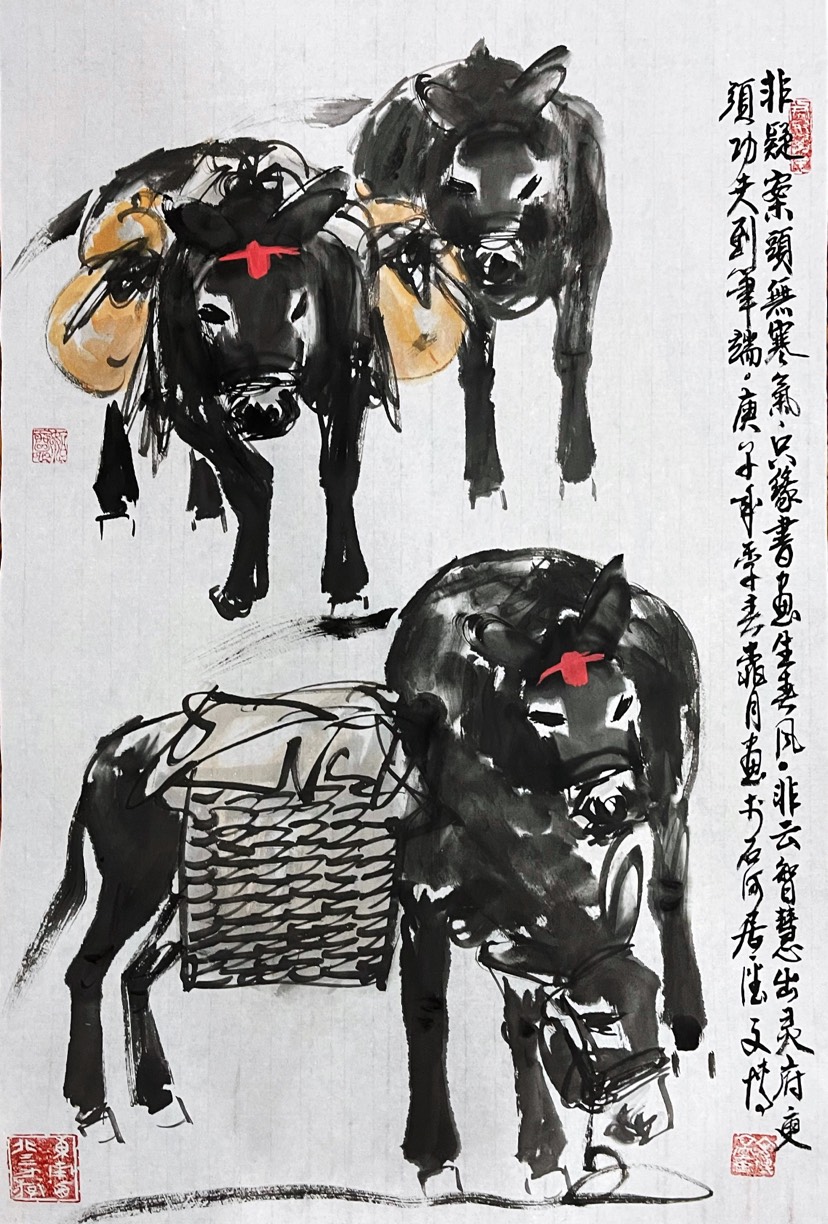 非疑案頭無寒氣，只緣書畫生春风。非云智慧出灵府更
須功夫到筆端。庚子年季春霏月畫於石河居